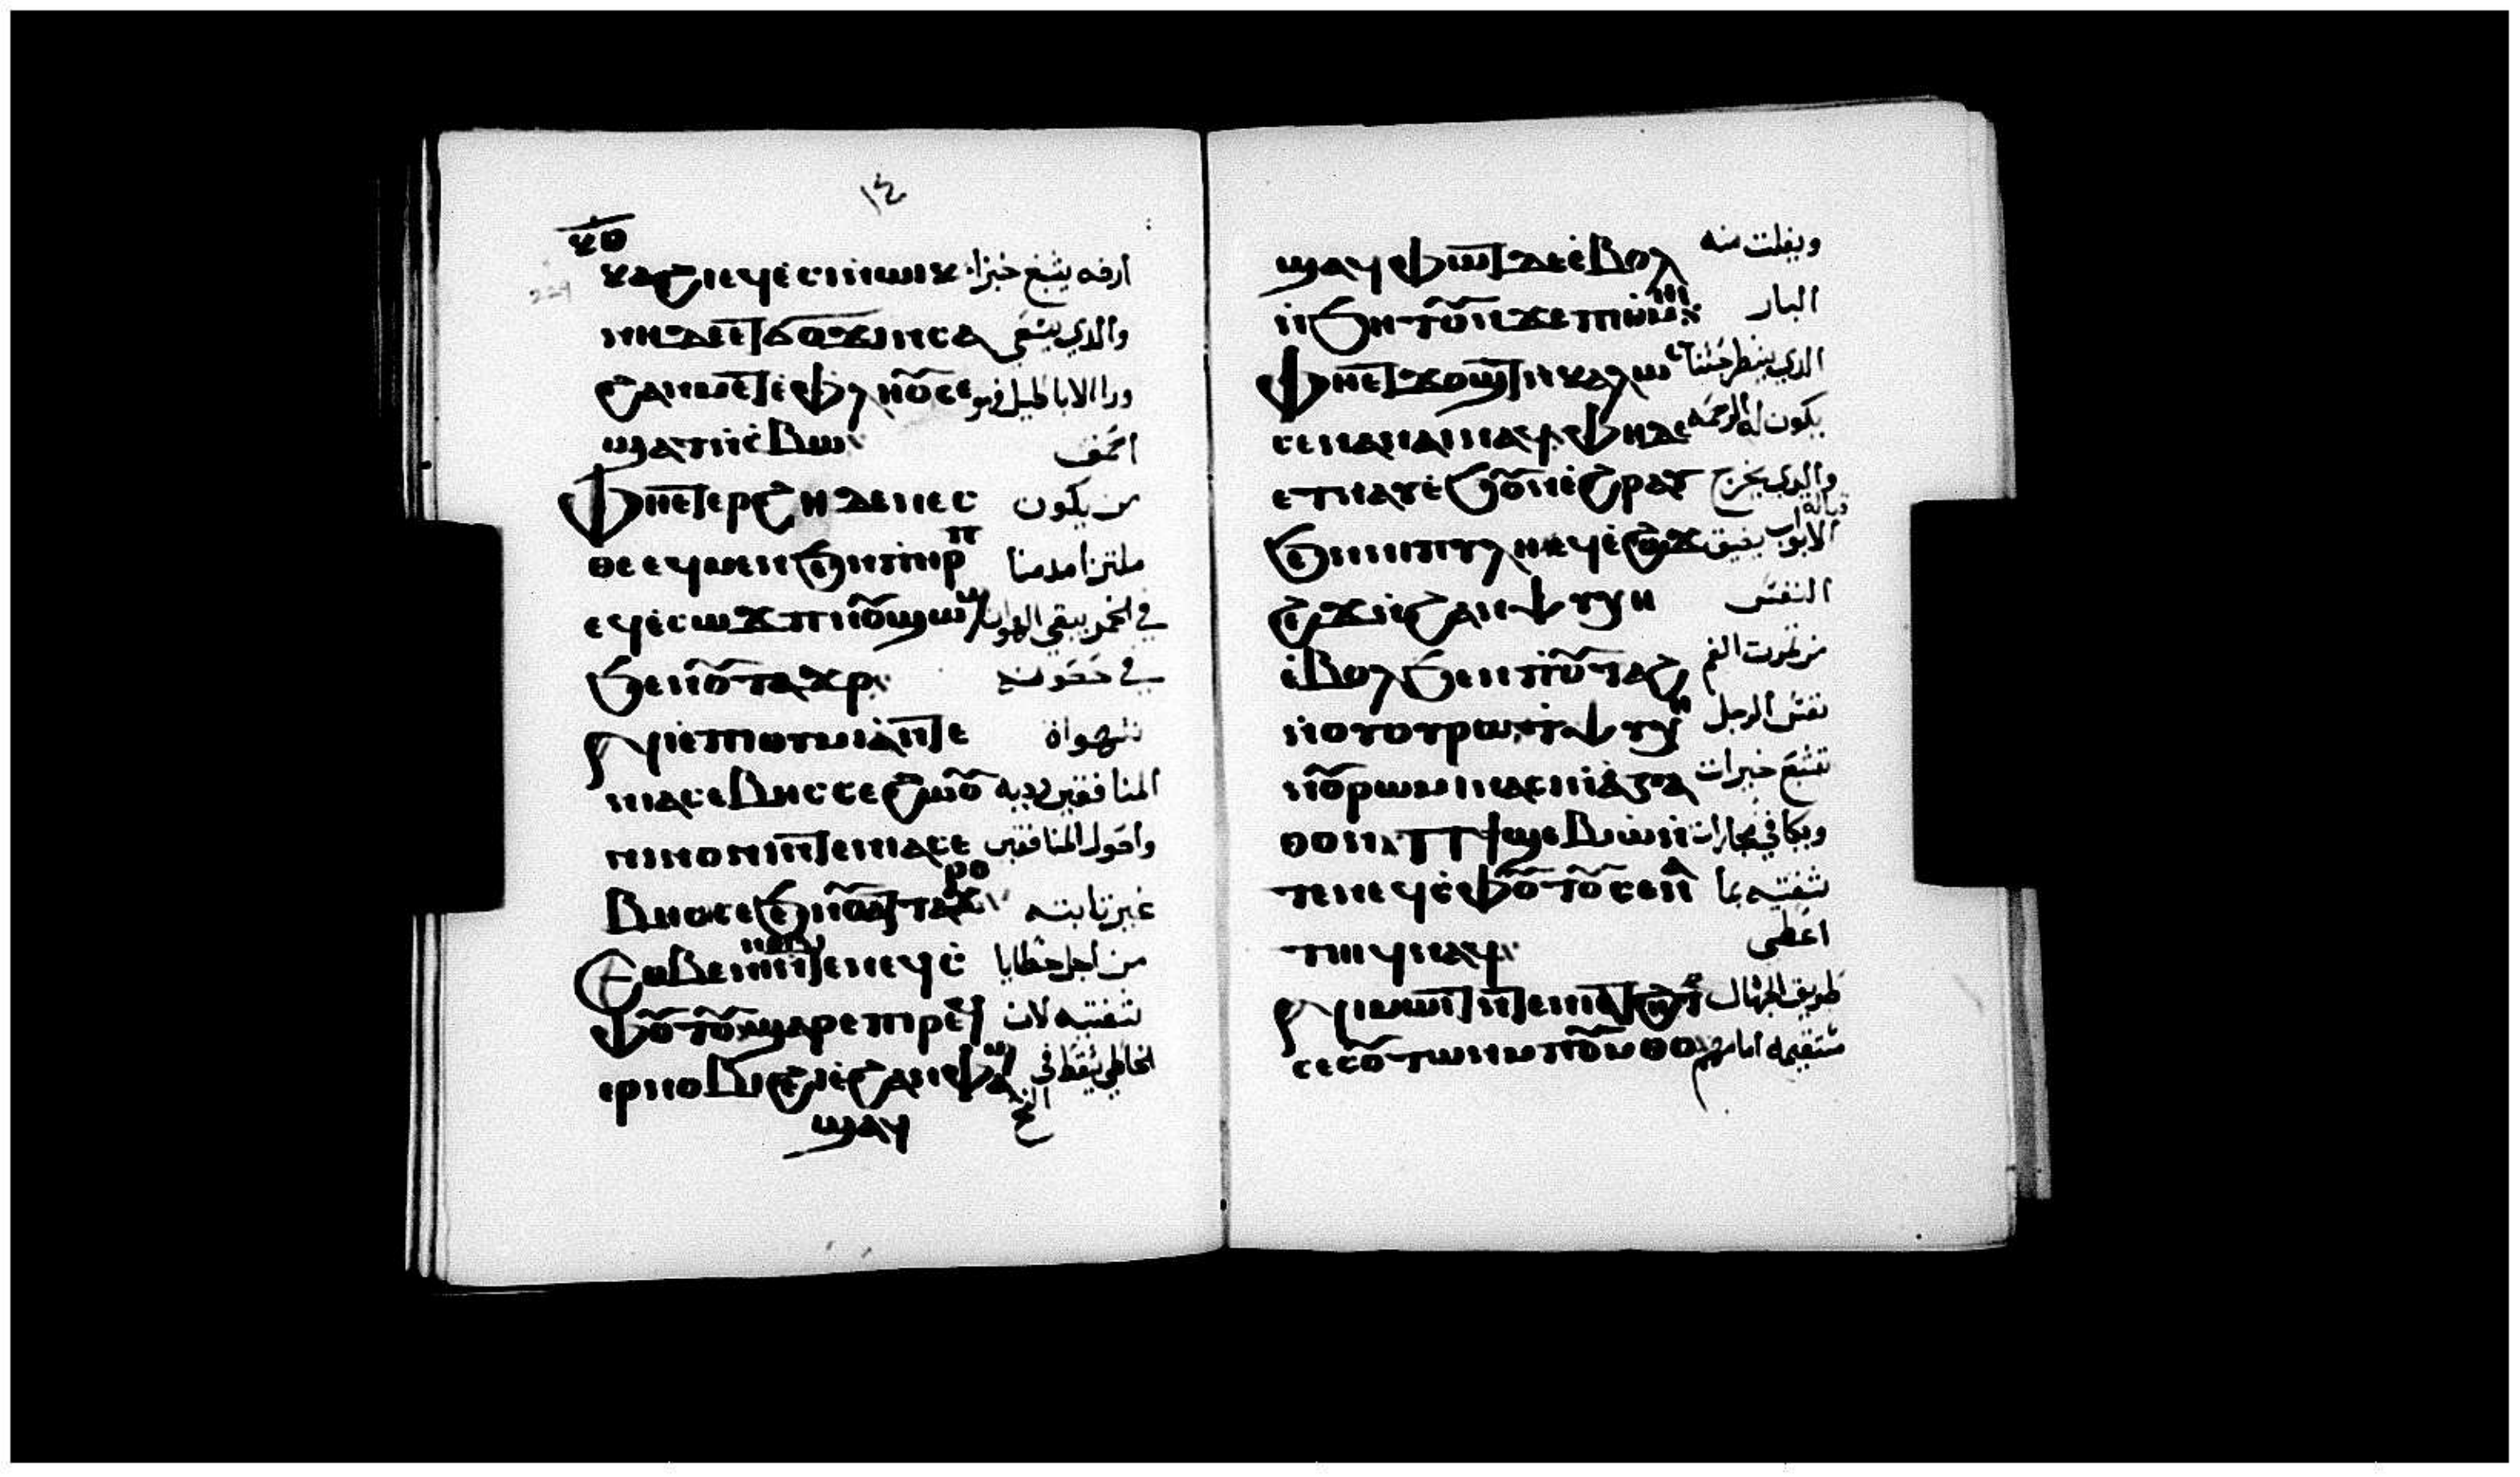 ١٤
ⲕⲁϩⲓ ⲉϥⲉⲥⲓ ⲛⲱⲓⲕ ارضه يشبع خبزا
ⲛⲏ ⲇⲉ ⲉⲧϭⲟϫⲓ ⲛⲥⲁ والذي يسعى
ϩⲁⲛⲙⲉⲧⲉⲫⲗⲏⲟⲩ ⲥⲉ ورا الاباطيل فهو
ϣⲁⲧⲛⲥⲃⲱ احمق
ⲫⲏⲉⲧⲉⲣϩⲏⲇⲉⲛⲉⲥ من يكون
ⲑⲉ ⲉϥⲙⲉⲛ ϧⲉⲛ ⲡⲓⲏⲣⲡ ملتزا مدمنا
ⲉϥⲉⲥⲱϫⲡ ⲛⲟⲩϣⲱϣ في الخمر يبقي الهوان
ϧⲉⲛ ⲛⲟⲩⲧⲁϫⲣⲟ في حصونه
ⲛⲓⲉⲡⲓⲑⲩⲙⲓⲁ ⲛⲧⲉ شهواة
ⲛⲓⲁⲥⲉⲃⲏⲥ ⲥⲉϩⲱⲟⲩ المنافقين رديه
ⲛⲓⲛⲟⲩⲛⲓ ⲛⲧⲉ ⲛⲓⲁⲥⲉ واصول المنافقين
ⲃⲏⲥ ⲥⲉϧⲉⲛ ⲟⲩⲧⲁϫⲣⲟ غير ثابته
ⲉⲑⲃⲉ ⲫⲛⲟⲃⲓ ⲛⲧⲉ ⲛⲉϥⲥ من اجل خطايا
ⲫⲟⲧⲟⲩ ϣⲁⲣⲉ ⲡⲓⲣⲉϥ شفتيه لان
ⲉⲣⲛⲟⲃⲓ ϩⲉⲓ ⲉϩⲁⲛⲫⲁϣ الخاطي يسقط في الفخ
ϣⲁϥ
ϣⲁϥⲫⲱⲧ ⲇⲉ ⲉⲃⲟⲗ ويفلت منه
ⲛϧⲏⲧⲟⲩ ⲛϫⲉ ⲡⲓⲑⲙⲏⲓ البار
ⲫⲏⲉⲧϫⲟⲩϣⲧ ⲛⲕⲁⲗⲱⲥ الذي ينظر حسنا
ⲥⲉⲛⲁⲛⲁⲓ ⲛⲁϥ ⲫⲏ ⲇⲉ يكون له الرحمه
ⲉⲧⲛⲁⲩⲉϧⲟⲩⲛ ⲉϩⲣⲁϥ والذي يخرج قبالة
ϧⲉⲛ ⲛⲓⲡⲩⲗⲏ ⲉϥⲉϩⲟϫ الابواب يضيق
ϩⲉϫ ⲛϩⲁⲛⲯⲩⲭⲏ النفس
ⲉⲃⲟⲗ ϧⲉⲛ ⲡⲟⲩⲧⲁϩ من ثمرت الفم
ⲛⲟⲩⲣⲱϥ ⲧⲯⲩⲭⲏ نفس الرجل
ⲛⲟⲩⲣⲱⲙⲓ ⲛⲁⲥⲓ ⲛⲁⲅⲁ تشبع خيرات
ⲑⲟⲛ ⲡϯϣⲉⲃⲓⲱ ⲛ ويكافي مجازات
ⲧⲉ ⲛⲉϥⲥⲫⲟⲧⲟⲩ ⲥⲉⲛⲁ شفتيه بما
ⲧⲏⲓϥ ⲛⲁϥ اعطي
ⲛⲓⲙⲱⲓⲧ ⲛⲧⲉ ⲛⲓⲁⲧϩⲏⲧ طريق الجهال
ⲥⲉⲥⲟⲩⲧⲱⲛ ⲙⲡⲟⲩⲙⲑⲟ مستقيمه امامهم